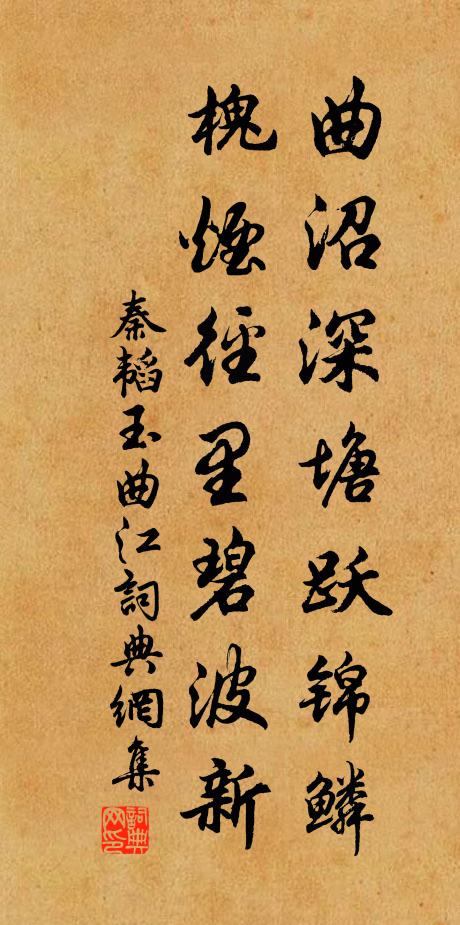 曲沼深塘跃锦鳞
槐煙径里碧波新
秦韬玉曲江詞典網集
詞典网印